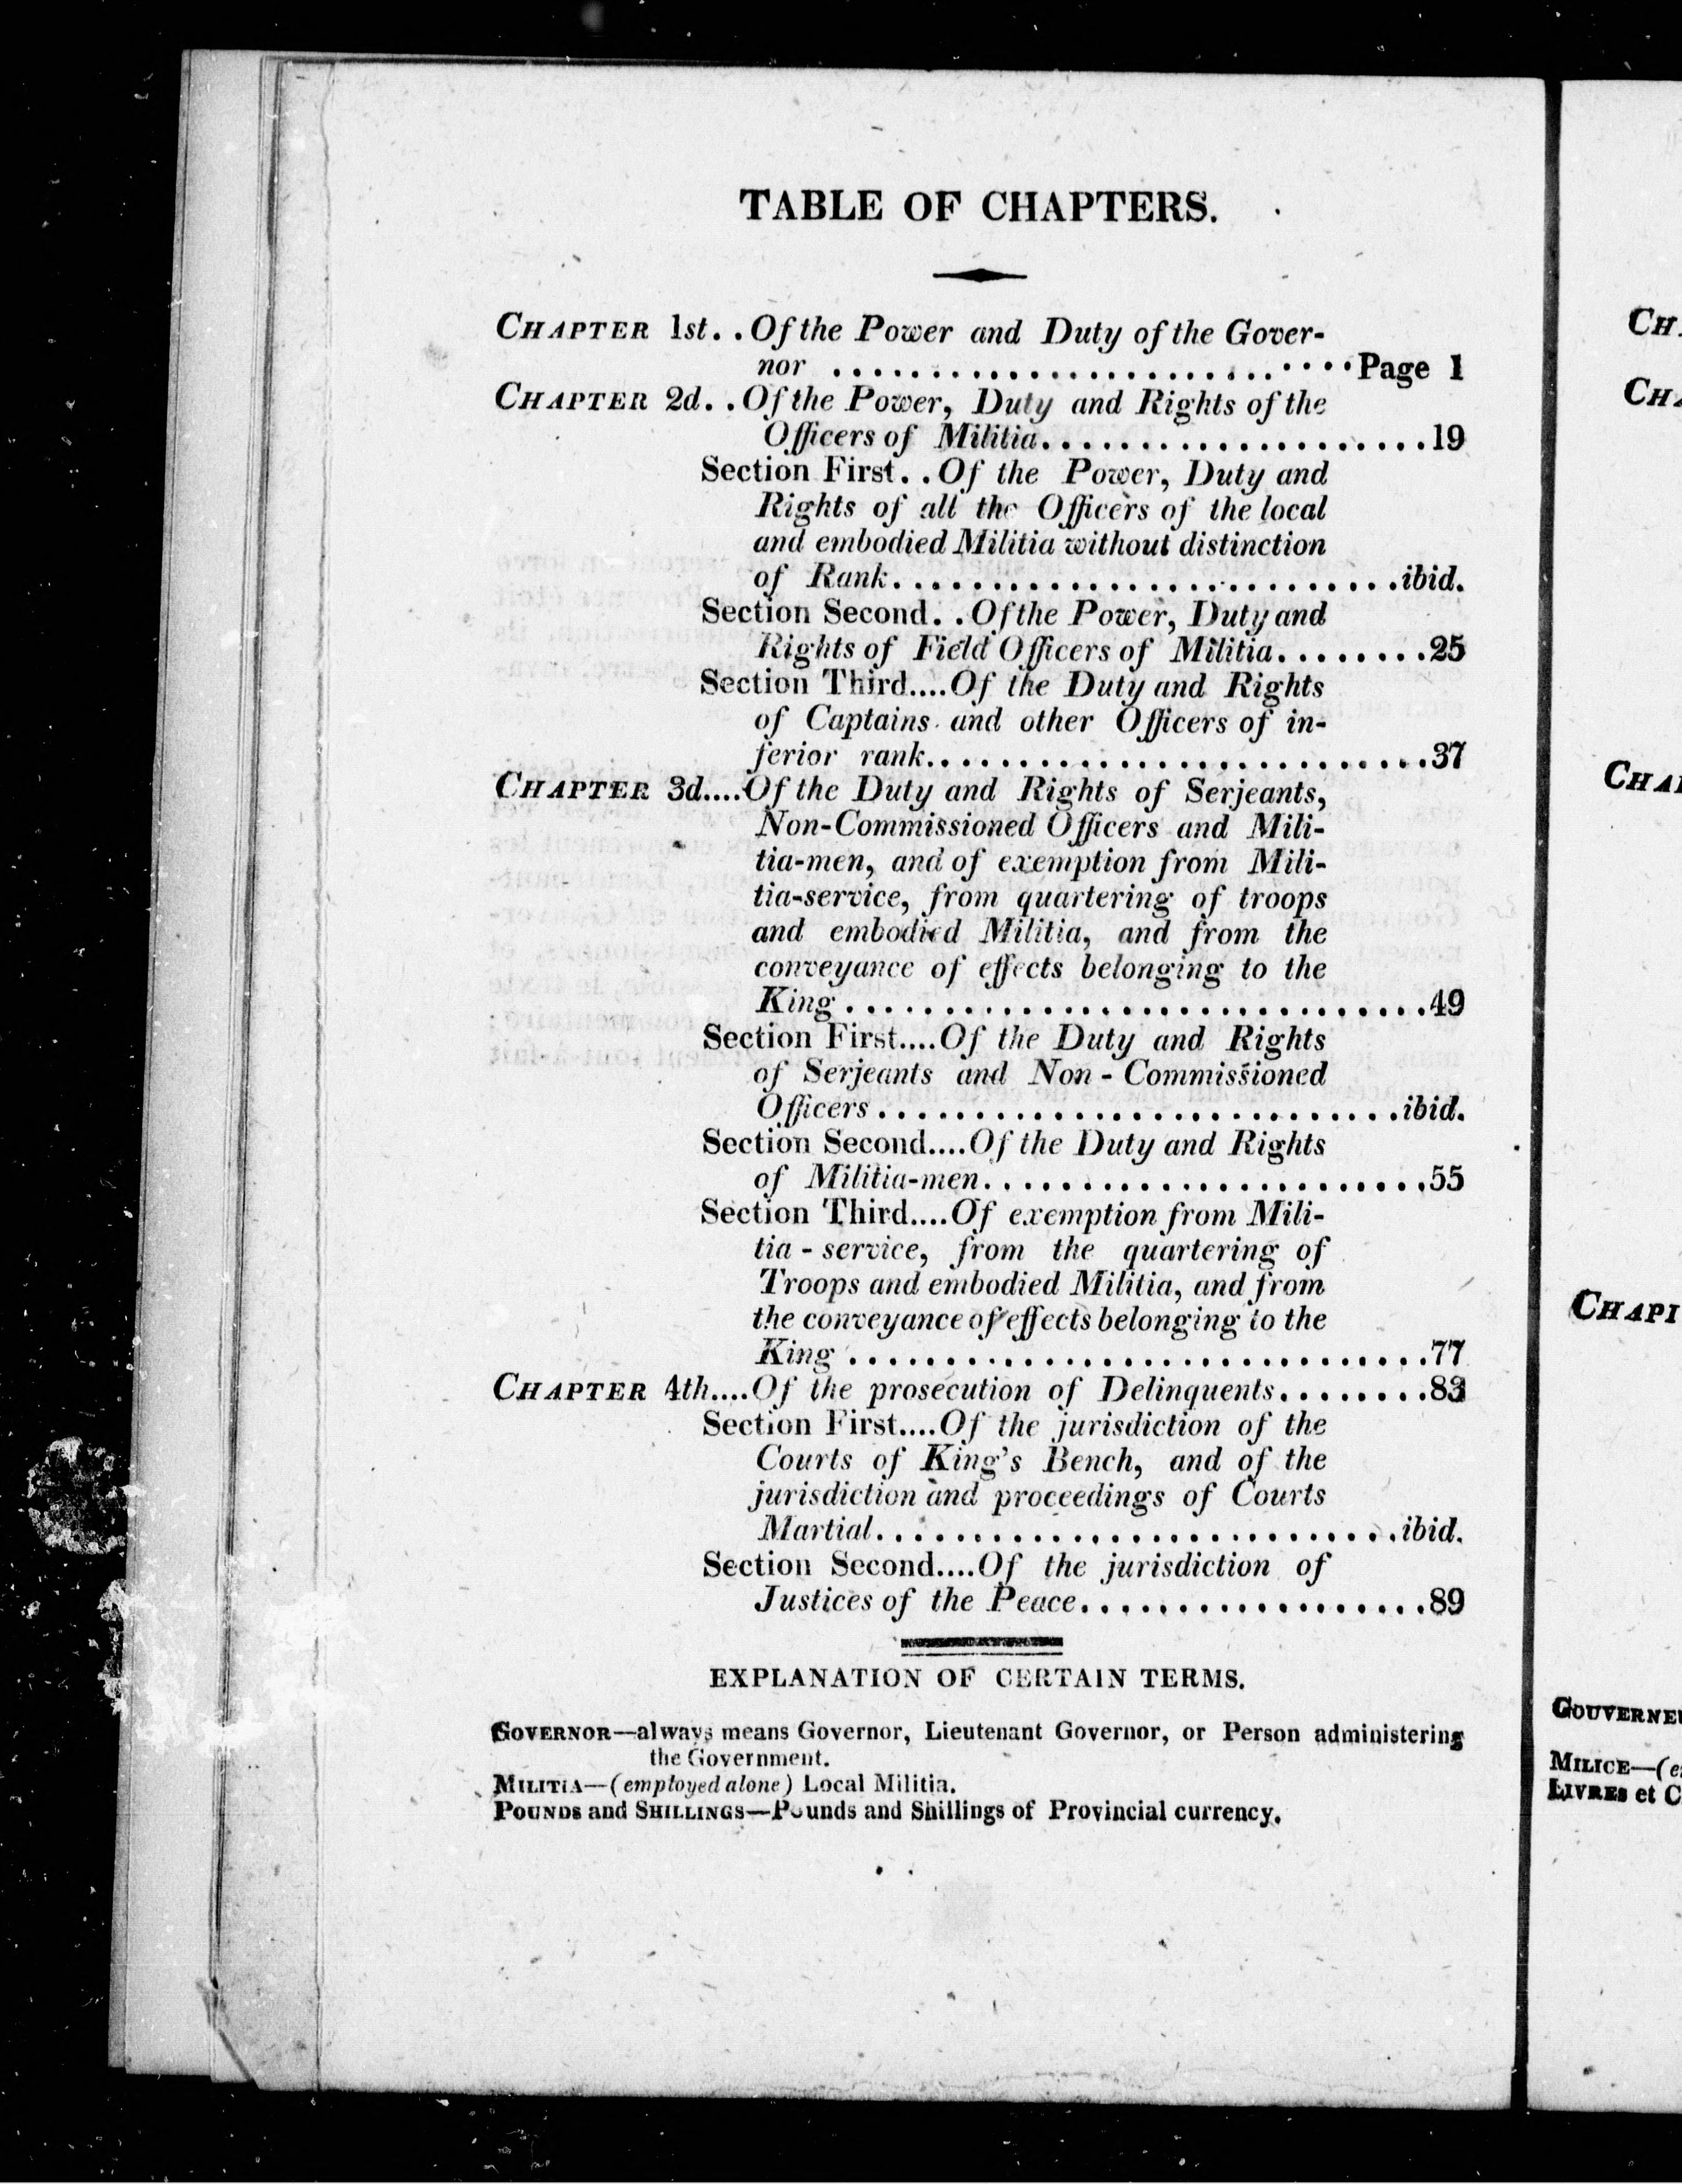 TABLE OF CHAPTERS.
CHAPTER 1st. . Of the Power and Duty of the Gover-
nor ................................Page 1
CHAPTER 2d. . Of the Power, Duty and Rights of the
Officers of Militia....................19
Section First. . Of the Power, Duty and
Rights of all the Officers of the local
and embodied Militia without distinction
of Rank..........................ibid.
Section Second. . Of the Power, Duty and
Rights of Field Officers of Militia........25
Section Third....Of the Duty and Rights
of Captains and other Officers of in-
ferior rank..........................37
CHAPTER 3d....Of the Duty and Rights of Serjeants,
Non-Commissioned Officers and Mili-
tia-men, and of exemption from Mili-
tia-service, from quartering of troops
and embodied Militia, and from the
conveyance of effects belonging to the
King ..............................49
Section First....Of the Duty and Rights
of Serjeants and Non - Commissioned
Officers ...........................ibid.
Section Second....Of the Duty and Rights
of Militia-men.......................55
Section Third....Of exemption from Mili-
tia - service, from the quartering of
Troops and embodied Militia, and from
the conveyance of effects belonging to the
King ..............................77
CHAPTER 4th....Of the prosecution of Delinquents........83
Section First....Of the jurisdiction of the
Courts of King's Bench, and of the
jurisdiction and proceedings of Courts
Martial...........................ibid.
Section Second....Of the jurisdiction of
Justices of the Peace..................89
EXPLANATION OF CERTAIN TERMS.
GOVERNOR—always means Governor, Lieutenant Governor, or Person administering
the Government.
MILITIA—(employed alone) Local Militia.
POUNDS and SHILLINGS—Pounds and Shillings of Provincial currency.
MILICE—(e
LIVRES et C